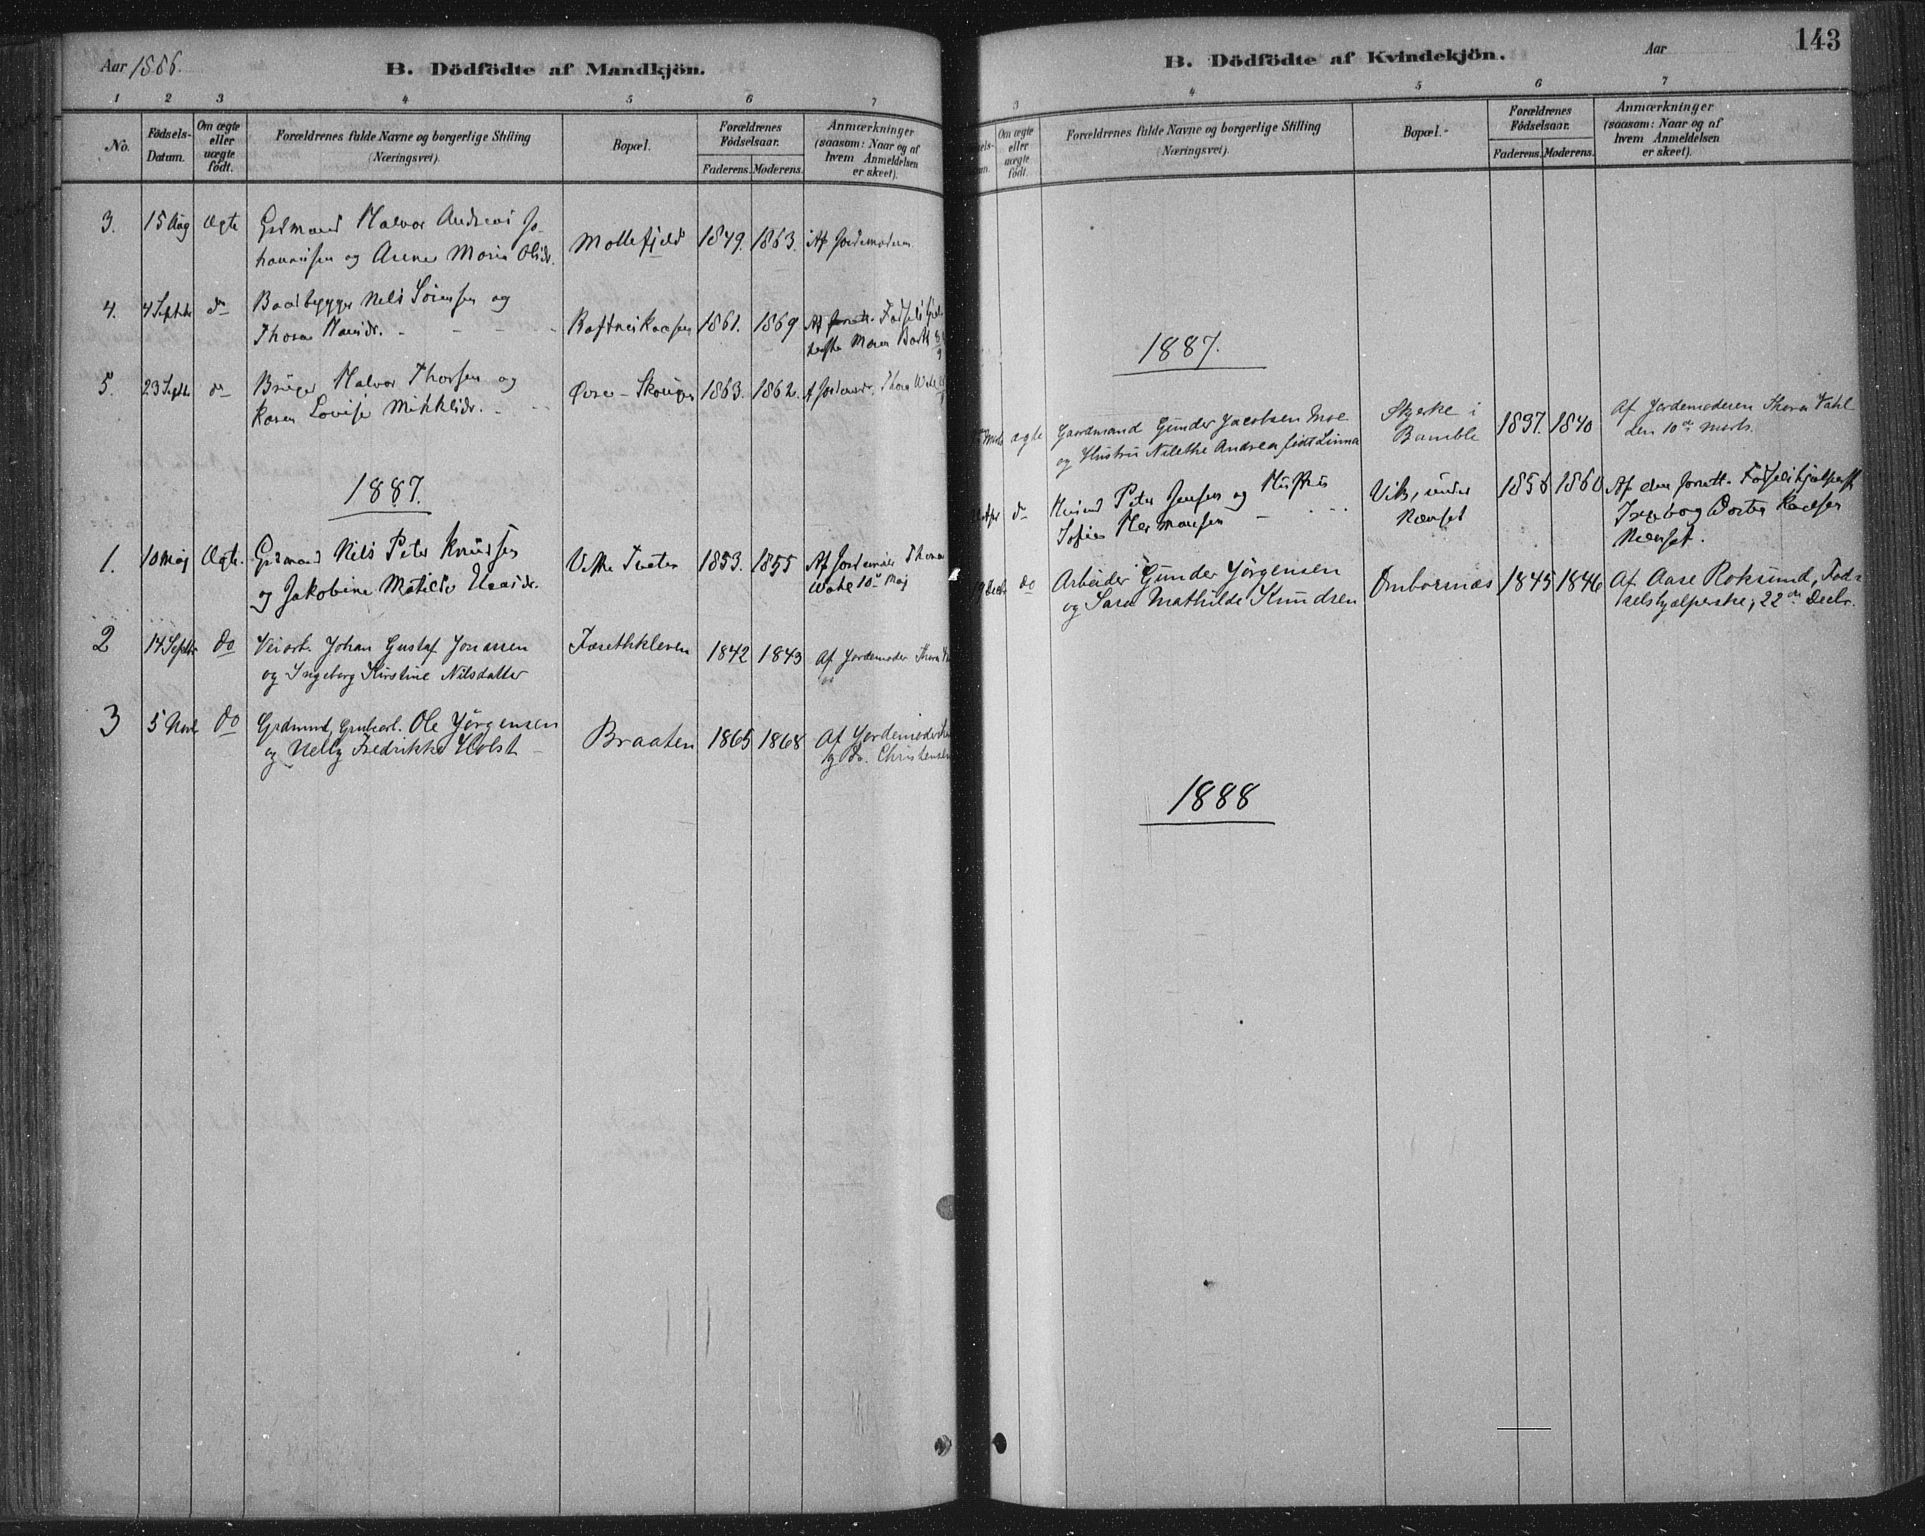 Aar 1886.
B. Dödfödte af Mandkjön.
1 2 3 4 5 6 7
No.
Födsels-
Datum.
Om ægte
eller
uægte
født.
Forældrenes fulde Navne og borgerlige Stilling
(Næringsvei).
Bopæl.
Forældrenes
Födselsaar.
Faderens. Moderens.
Anmærkninger
(saasom: Naar og af
hvem Anmeldelsen
er skeet).
3. 15 Aug Ægte Grdmand Halvor Andreas Jo-
hannesen og Anne Maria Olsdr. Mollefjeld 1849. 1863. Af Jordemoderen
4. 4 Septbr do Baadbygger Nels Sörensen og
Thora Hansdr. 1861. 1869
5. 23 Septbr do Bruger Halvor Thorsen og
Karen Lovise Mikkelsdr. Øvre-Skougen 1863. 1862. Thora Wahl
1887.
1. 10 Maj Ægte. Grdmand Nils Peter Knudsen
og Jakobine Matilde 1853. 1855 Af Jordemoder Thora
Wahl 10de Maj
2 14 Septbr do Veiarb. Johan Gustaf Jonassen
og Ingeborg Kirstine Nilsdatter Tarethkleven 1842 1843 Af Jordemoder Thora
3 5 Novb do Grdmand, Grubearb. Ole Jörgensen
og Nelly Fredrikke Holst Braaten 1865 1868 Af Jordemoder
og Do. Christensen
143
B. Dödfödte af Kvindekjön.
Aar
3 4 5 6 7
Om ægte
eller
uægte
født.
Forældrenes fulde Navne og borgerlige Stilling
(Næringsvei).
Bopæl.
Forældrenes
Födselsaar.
Faderens. Moderens.
Anmærkninger
(saasom: Naar og af
hvem Anmeldelsen
er skeet).
1887.
ægte Gaardmand Gunder Jacobsen Moe
og Hustru Nilethe Andrea født Linna Skjerke i
Bamble 1837. 1840 Af Jordemoderen Thora Vahl
den 10de Marts.
do Peter Jensen og Hustru
Sofie Hermansen Vik, under
Nenset 1856 1860 Af den Födselshjælperske
Ingeborg Dorte
Nenset.
19 Decbr do Arbeider Gunder Jörgensen
og Sara Mathilde Knudsen Ombornæs 1845 1846 Af Aase Roksund, Föd-
selshjælperske, 22de Decbr.
1888